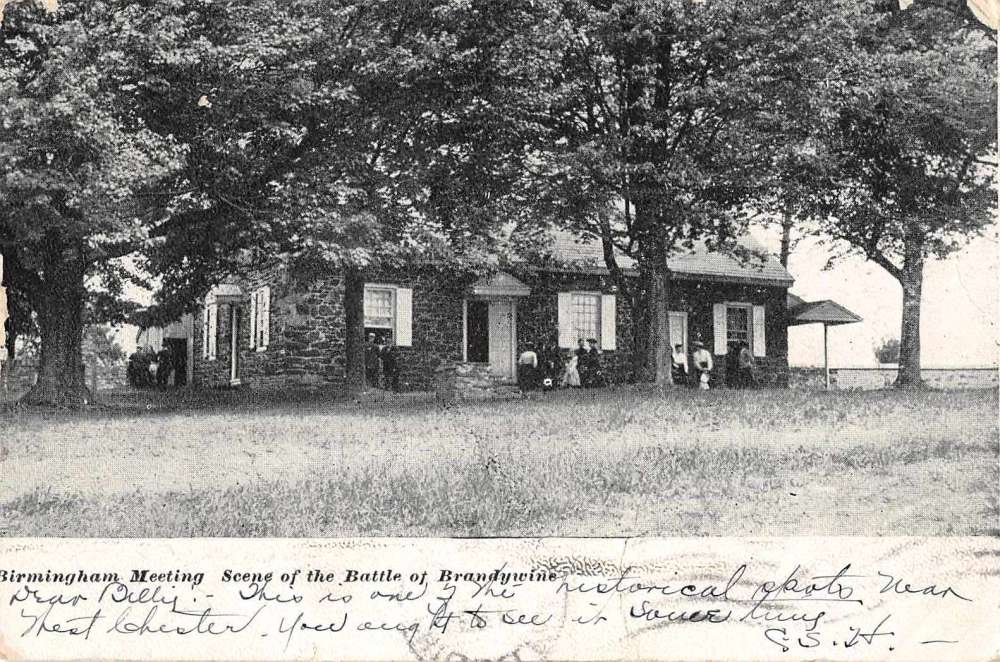 Birmingham Meeting Scene of the Battle of Brandywine
Dear Billy:- This is one of the historical spots near
West Chester. You ought to see it some time
C. S. H. —